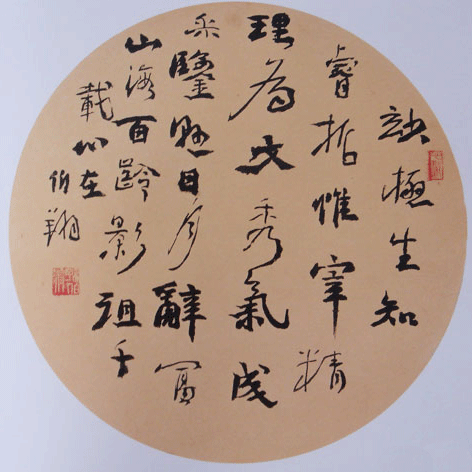 妙極生知
睿哲惟宰精
理為文秀氣成
采鑒懸日月辭富
山海百齡影徂千
載心在
伯翔